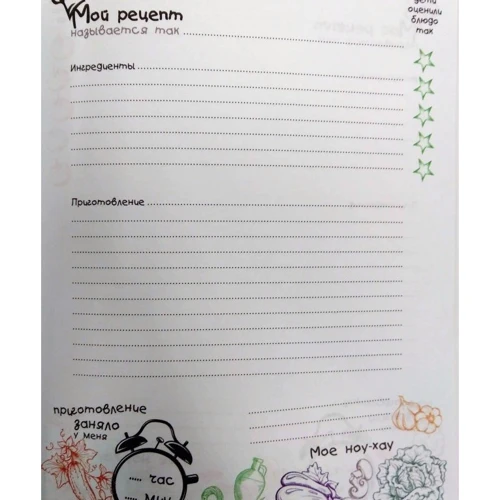 Мой рецепт
называется так
дети
оценили
блюдо
так
Ингредиенты
Приготовление
приготовление
заняло
у меня
час
мин
Мое ноу-хау